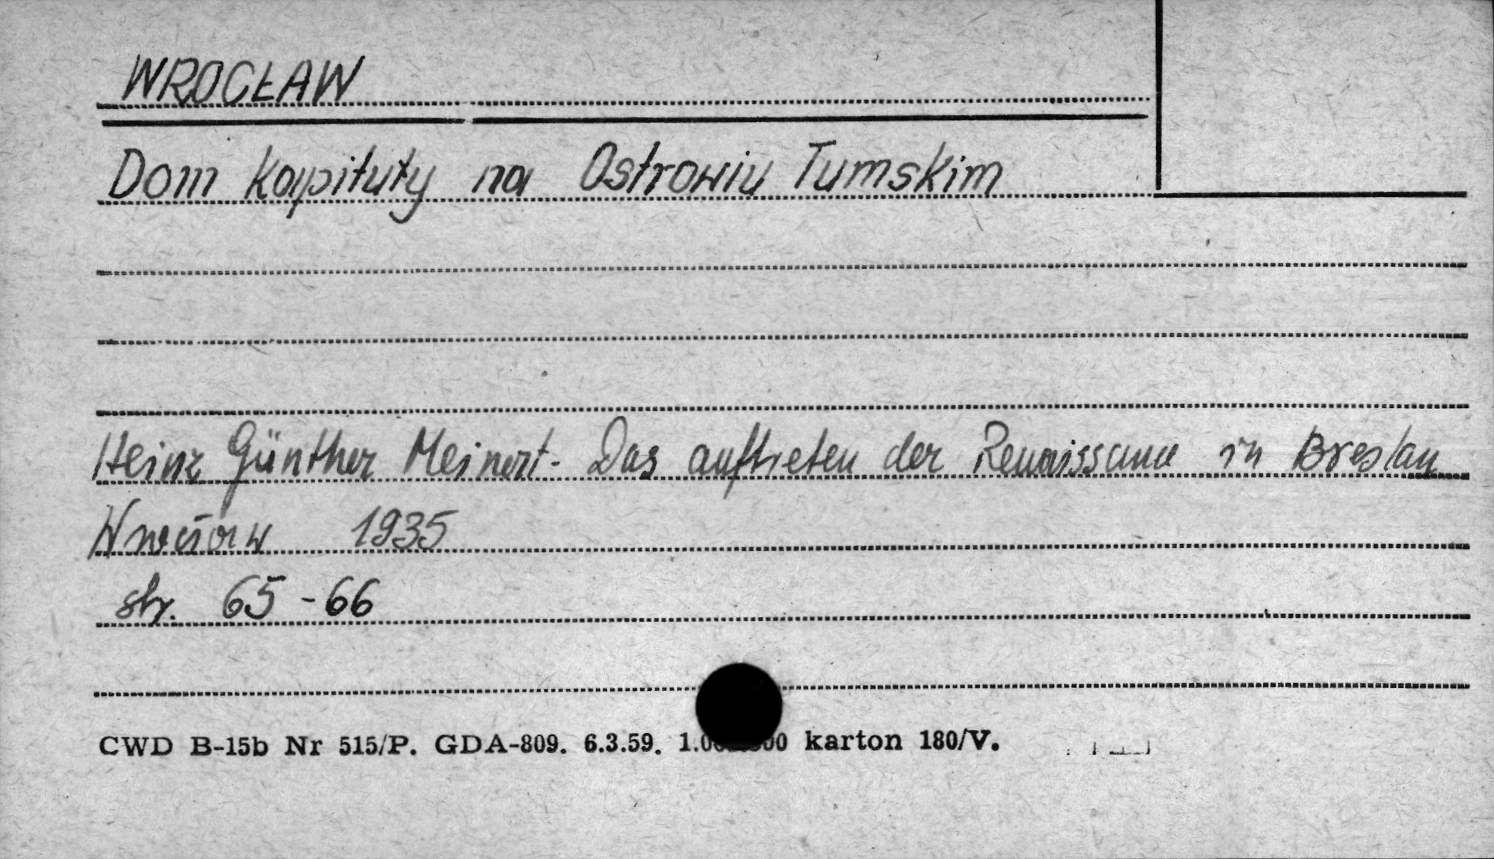 WROCŁAW
Dom Kapituły na Ostrowiu Tumskim
Heinz Günther Meinert - Das auftreten der Renaissance in Breslau
Wrocław 1935
str. 65-66
CWD B-15b Nr 515/P. GDA-809. 6.3.59. karton 180/V.